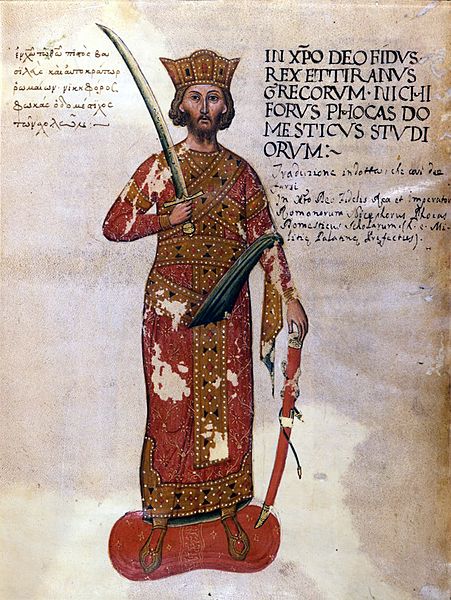 ἐν χῶ τῶ θῶ πιστὸς βα
σιλεὺς καὶ αὐτοκράτωρ
ῥωμαίων· νικηφόρος
φωκας ὁ δομέστιχος
IN XP̅O DEO FIDVS·
REX ET TIRANVS
GRECORVM·NICHI
FORVS PHOCAS DO
MESTICVS STVDI
ORVM:~
Traduzione indotta; che così dee
farsi
In Xp̅to Deo Fidelis Rex et imperator
Romanorum Nicephorus Phocas
Domesticus Scholarum (h. e. Mi-
litiae Palatinae Praefectus).